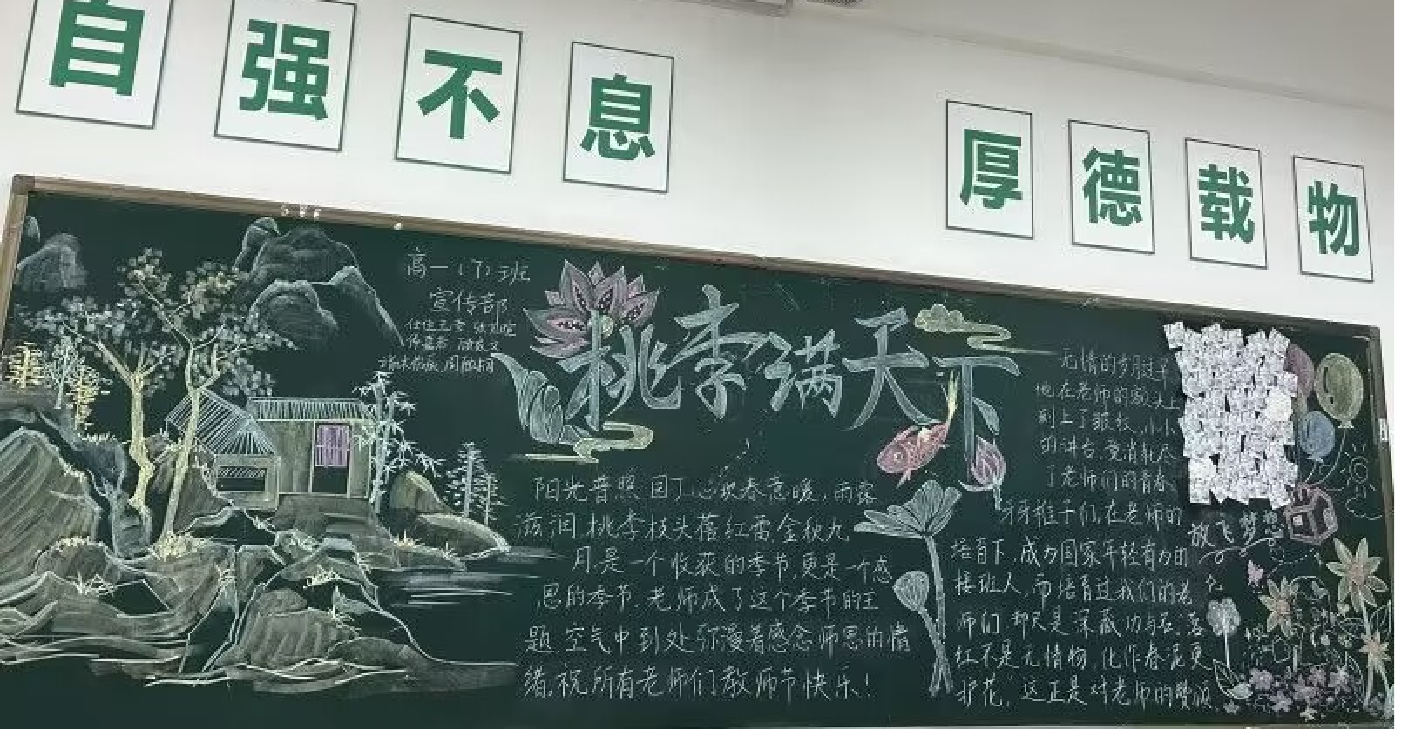 自强不息
厚德载物
高一(7)班
宣传部
桃李满天下
阳光普照,园丁心坎春意暖,雨露
滋润,桃李枝头蓓红蕾,金秋九
月是一个收获的季节,更是一个感
恩的季节,老师成了这个季节的主
题,空气中到处弥漫着感念师恩的情
绪,祝所有老师们教师节快乐!
无情的岁月过早
地在老师的额头上
刻上了皱纹,小小
的讲台,变消耗尽
了老师们的青春,
牙牙稚子们,在老师的
培育下,成为国家年轻有为的
接班人,而培育过我们的老
师们,却只是深藏功与名,落
红不是无情物,化作春泥更
护花,这正是对老师的赞颂
放飞梦想